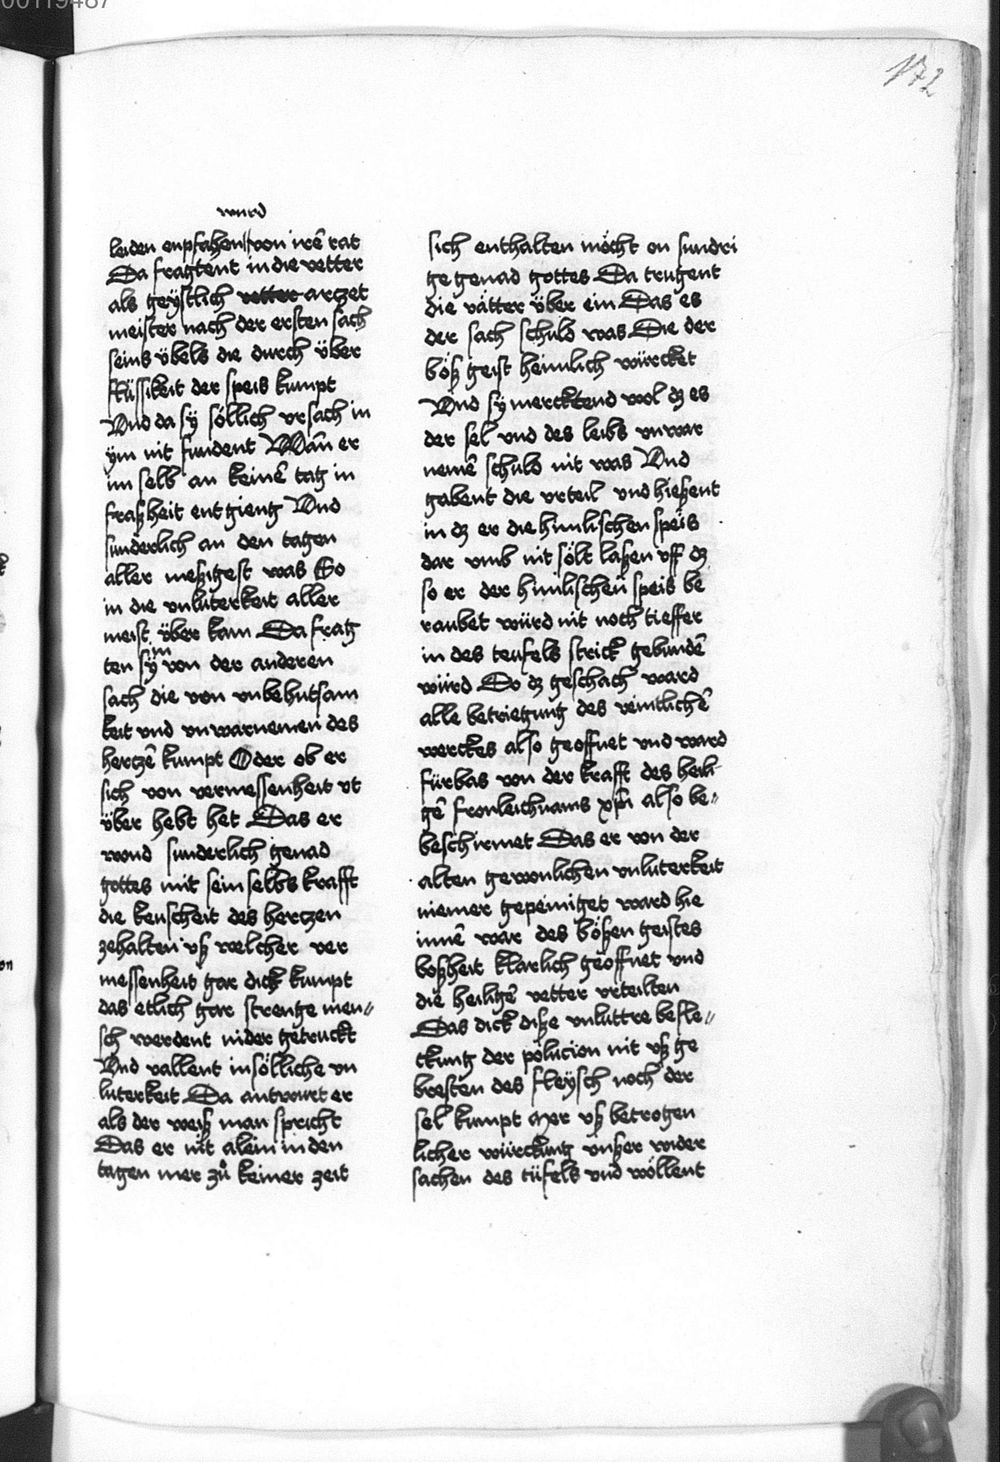 00119487
172
wurd
leiden enpfahen von irē rat
Da fragtent in die vetter
als geystlich vetter arczet
meister nach der ersten sach
seins übels die durch über
flüssikeit der speis kumpt
Vnd da sÿ söllich vrsach in
ÿm nit fundent Wan̄ er
im selb an keinē tag in
fraßheit entgieng Vnd
sunderlich an den tagen
aller meßigest was So
in die vnluterkeit aller
meist über kam Da frag
ten sÿ in von der anderen
sach die von vnbehutsam
keit vnd vnwarnemen des
hertzē kumpt Oder ob er
sich von vermessenheit vt
über hebt het Das er
wond sunderlich genad
gottes mit sein selbs krafft
die keuscheit des hertzen
zehalten vß welcher ver
messenheit gar dick kumpt
das etlich gar strenge men〃
sch werdent nider getruckt
Vnd vallent in sölliche vn
luterkeit Da antwurt er
als der weiß man spricht
Das er nit alein in den
tagen mer zů keiner zeit
sich enthalten möcht on sundri
ge genad gottes Da trugent
die vätter über ein Das es
der sach schuld was Die der
böß geist heimlich würcket
Vnd sÿ mercktend wol dz es
der sel vnd des leibs vnwar
nemē schuld nit was Vnd
gabent die vrteil vnd hießent
in dz er die himlischen speis
dar vmb nit sölt laßen vff dz
so er der himlischen̄ speis be
raubet würd nit noch tieffer
in des teufels strick gebundē
würd So dz geschach ward
alle betriegung des veintlichē
werckes also geoffnet vnd ward
fürbas von der krafft des heili
gē fronleichnams xp̄i also be〃
beschirmet Das er von der
alten gewonlichen vnluterkeit
niemer gepeiniget ward hie
innē war des bößen geistes
boßheit klarlich geoffnet vnd
die heiligē vetter vrteilten
Das dick diße vnluttre befle〃
ckung der polucion nit vß ge
bresten des fleÿsch noch der
sel kumpt Mer vß betrogen
licher würckung vnßer wider
sachen des tüfels vnd wöllent